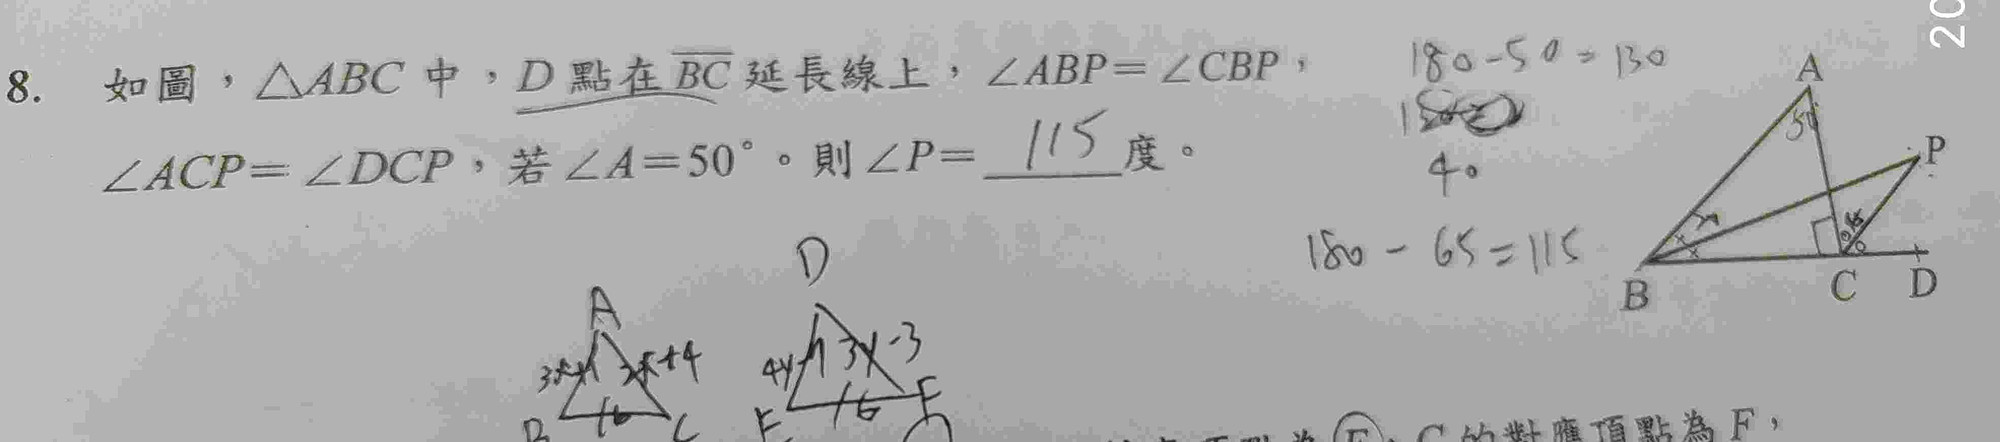 8. 如圖，△ABC 中，D 點在 BC 延長線上，∠ABP=∠CBP，
∠ACP=∠DCP，若 ∠A=50°。則 ∠P= 115 度。
180-50=130
40
180-65=115
A
50
P
B
C
D
A
+4
16
C
D
4y
3y-3
16
E
F
C 的對應頂點為 F，
20